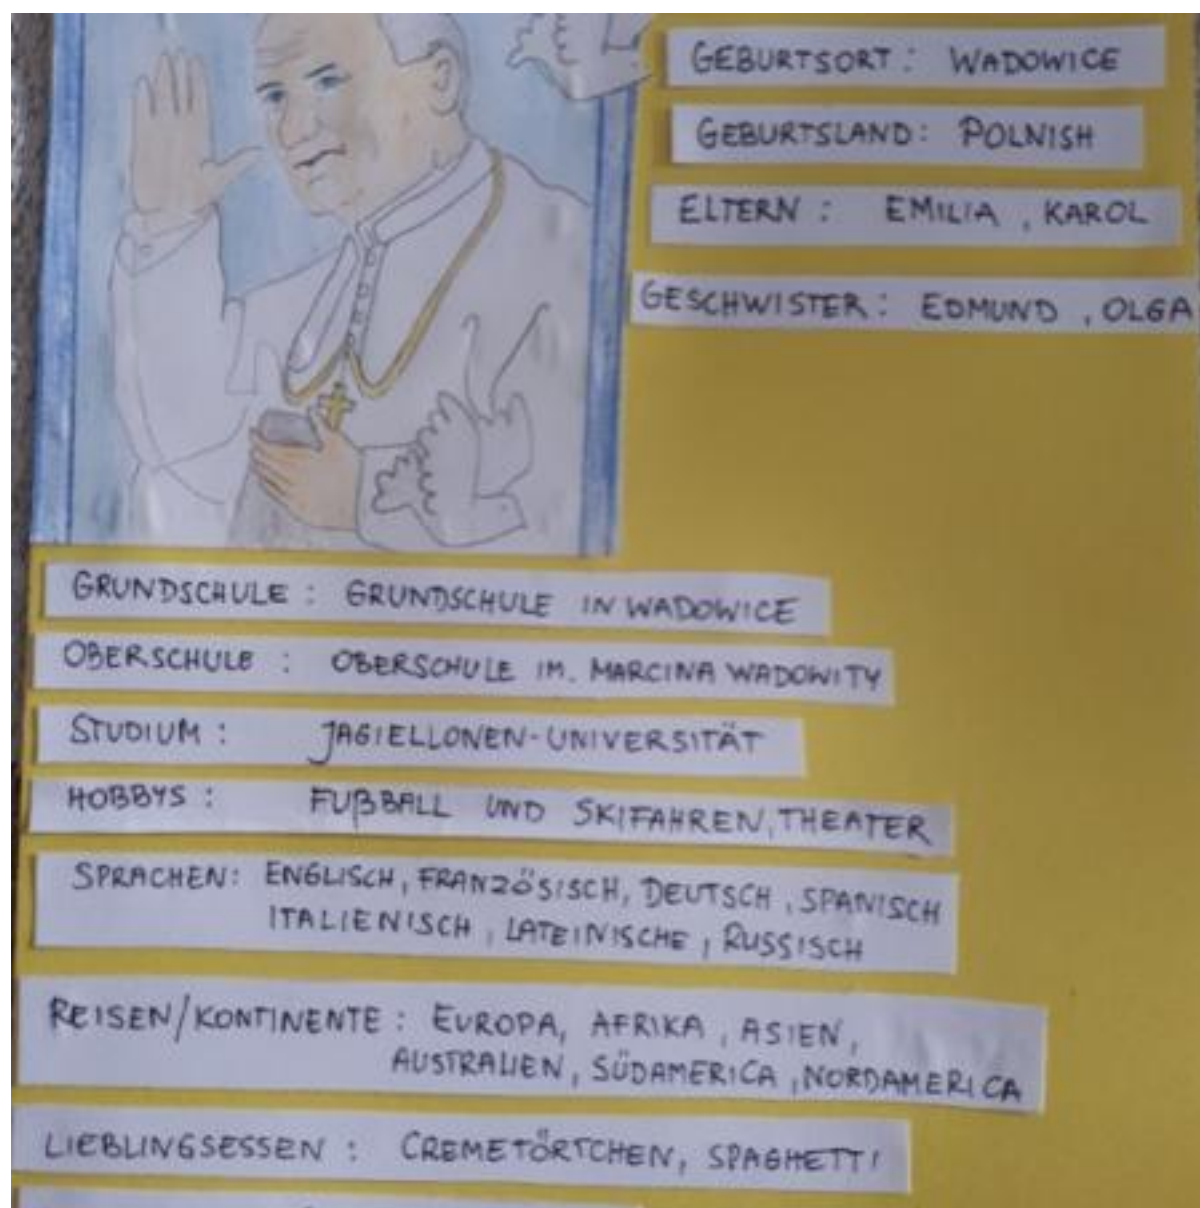 GEBURTSORT: WADOWICE
GEBURTSLAND: POLNISH
ELTERN: EMILIA, KAROL
GESCHWISTER: EDMUND, OLGA
GRUNDSCHULE: GRUNDSCHULE IN WADOWICE
OBERSCHULE: OBERSCHULE IM. MARCINA WADOWITY
STUDIUM: JAGIELLONEN-UNIVERSITÄT
HOBBYS: FUßBALL UND SKIFAHREN, THEATER
SPRACHEN: ENGLISCH, FRANZÖSISCH, DEUTSCH, SPANISCH
ITALIENISCH, LATEINISCHE, RUSSISCH
REISEN/KONTINENTE: EUROPA, AFRIKA, ASIEN,
AUSTRALIEN, SÜDAMERICA, NORDAMERICA
LIEBLINGSESSEN: CREMETÖRTCHEN, SPAGHETTI